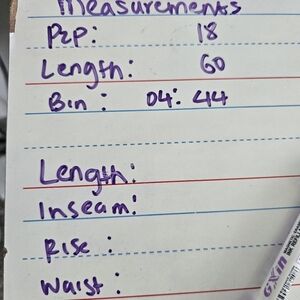 Measurements
P2p: 18
Length: 60
Bin: 04: 44
Length:
Inseam:
Rise:
Waist:
GXin